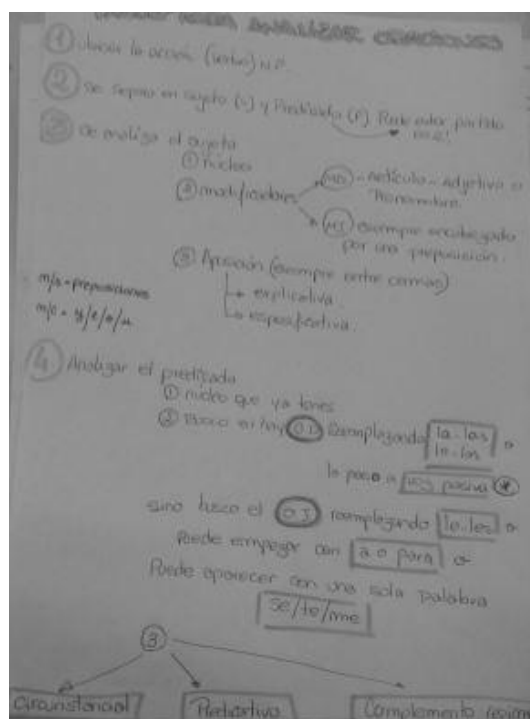 PARA ANALIZAR ORACIONES
① ubicar la acción (verbo) N.P.
② Se separa en sujeto (S) y Predicado (P) Puede estar partido
③ Se analiza el sujeto
① núcleo
② modificadores
MD - Artículo - Adjetivo o
Pronombre
MI siempre encabezado
por una preposición.
③ Aposición (siempre entre comas)
↳ explicativa
↳ especificativa
n/s = preposiciones
n/c = y/e/o/u
④ Analizar el predicado
① núcleo que ya tenes
② Busco si hay O.D Reemplazando la-las
lo-los o
lo paso a voz pasiva *
sino busco el O.I reemplazando le-les o
Puede empezar con a o para o
Puede aparecer con una sola palabra
se/te/me
③
Circunstancial Predicativo Complemento